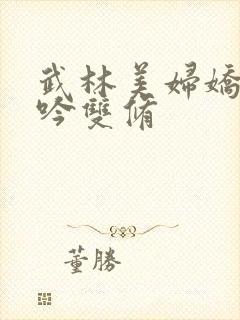 武林美婦嬌
吟雙脩
董勝